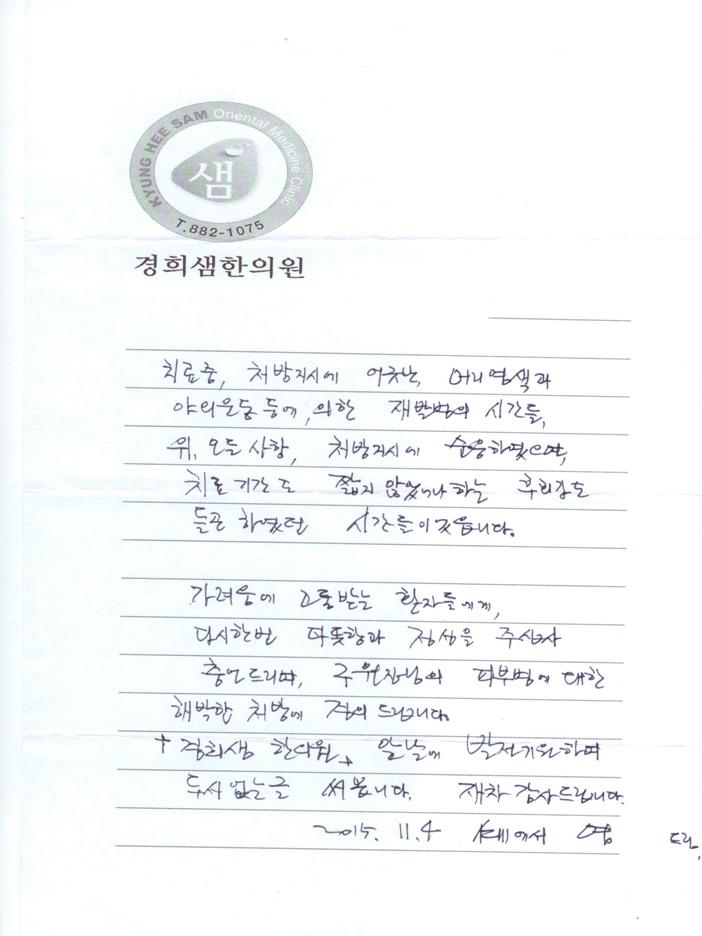 KYUNG HEE SAM Oriental Medicine Clinic
샘
T.882-1075
경희샘한의원
치료중, 처방지시에 어긋난, 머리염색과
야외운동 등에, 의한 재발병의 시간들,
위, 모든 사항, 처방지시에 순응하였으면,
치료기간도 짧지 않았나 하는 후회감도
들곤 하였던 시간들이었읍니다.
가려움에 고통받는 환자들에게,
다시한번 따뜻함과 정성을 주십사
충언드리며, 구원장님의 피부병에 대한
해박함 처방에 경의 드립니다.
경희샘 한의원, 앞날에 발전기원하며
두서없는글 써봅니다. 재차 감사드립니다.
2015. 11. 4 에서 드림,